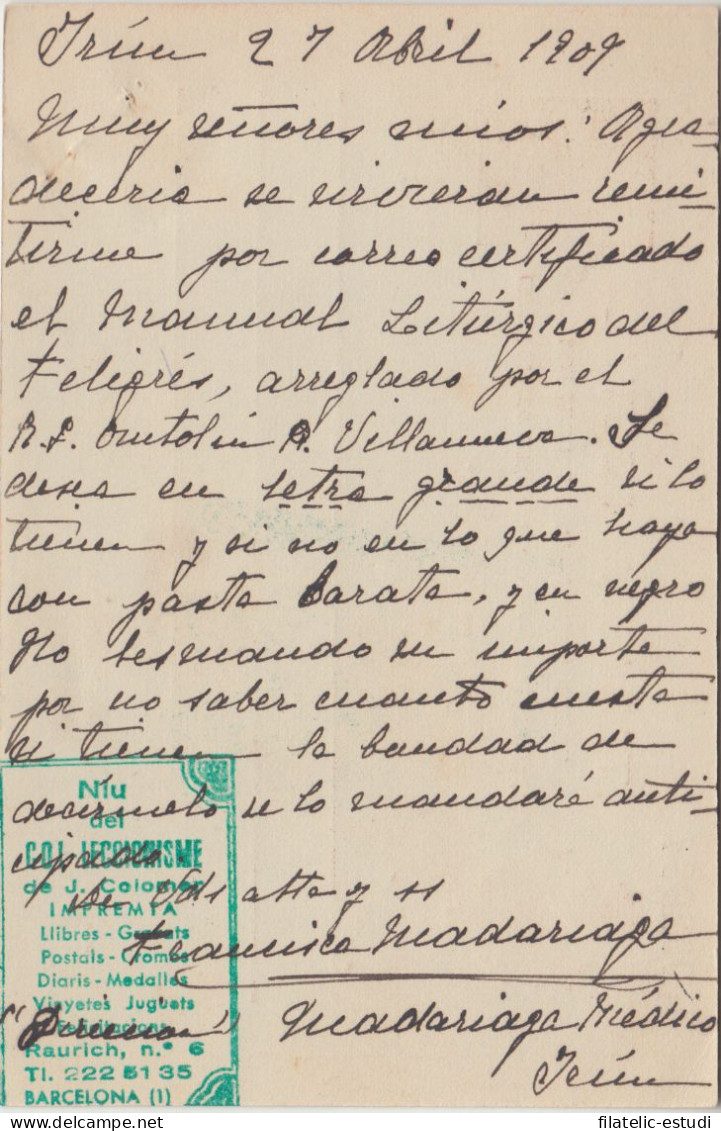 Irún 27 Abril 1909
Muy señores mios: Agra-
deceria se sirvieran remi-
tirme por correo certificado
el Manual Litúrgico del
Feligrés, arreglado por el
R.P. Antolin P. Villanueva. Se
desea en letra grande si lo
tienen y si no en lo que haya
con pasta barata, y en negro
No les mando su importe
por no saber cuanto cuesta
si tienen la bondad de
decirmelo se lo mandaré anti-
cipado.
De Vds atta y ss
Francisca Madariaga
"Direccion" Madariaga Médico
Irún
Niu
del
COL·LECCIONISME
de J. Colomer
IMPREMTA
Llibres - Gravats
Postals - Cromos
Diaris - Medalles
Vinyetes Juguets
Felicitacions
Raurich, n.º 6
Tl. 222 51 35
BARCELONA (1)
filatelic-estudi